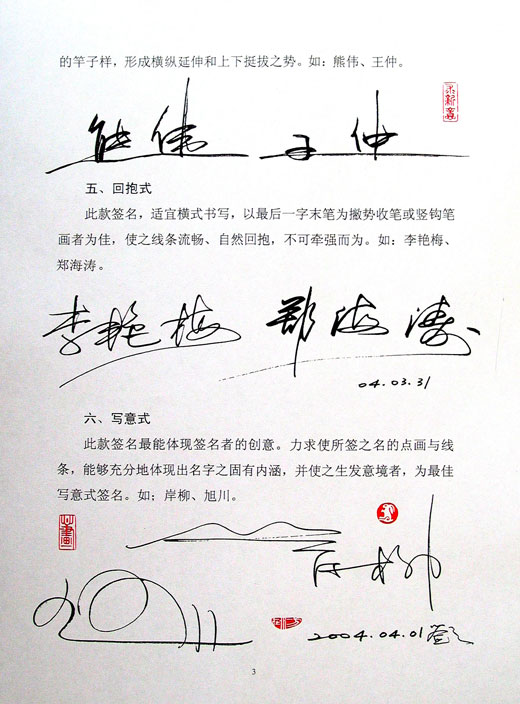 的竿子样，形成横纵延伸和上下挺拔之势。如：熊伟、王仲。
熊伟 王仲
五、回抱式
此款签名，适宜横式书写，以最后一字末笔为撇势收笔或竖钩笔
画者为佳，使之线条流畅、自然回抱，不可牵强而为。如：李艳梅、
郑海涛。
李艳梅 郑海涛
04.03.31
六、写意式
此款签名最能体现签名者的创意。力求使所签之名的点画与线
条，能够充分地体现出名字之固有内涵，并使之生发意境者，为最佳
写意式签名。如：岸柳、旭川。
岸柳
旭川
2004.04.01
3